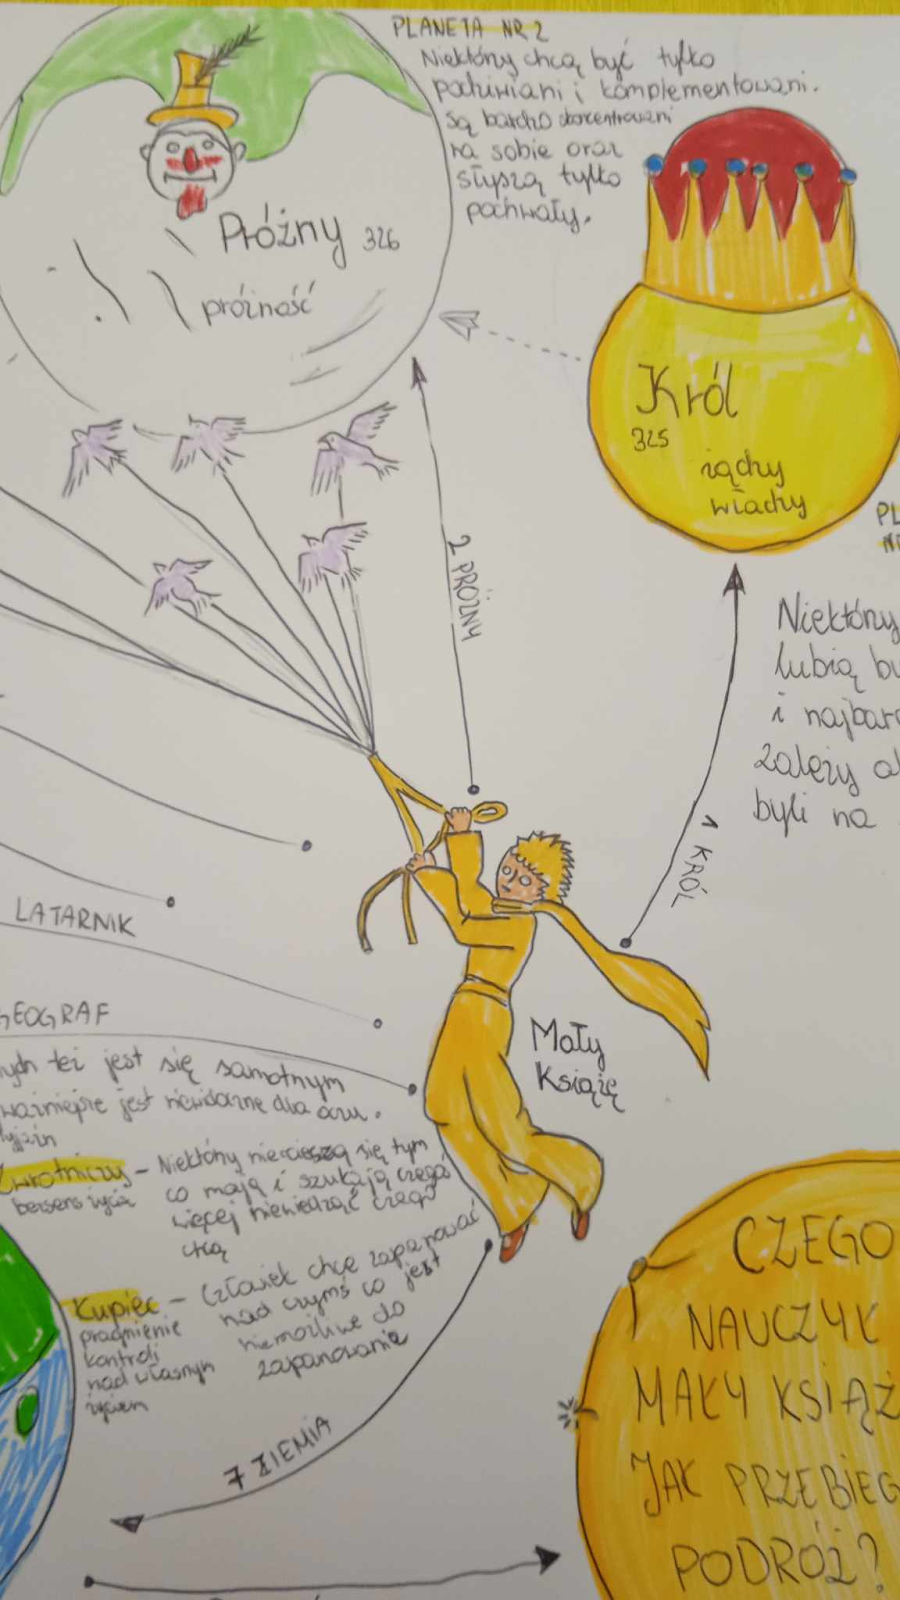 PLANETA NR 2
Niektórzy chcą być tylko
podziwiani i komplementowani.
są bardzo skoncentrowani
na sobie oraz
słyszą tylko
pochwały.
Próżny 326
próżność
Król
325
żądzy
władzy
PL
NR
Niektórzy
lubią
i najbar
zależy
byli na
2 PRÓŻNY
1 KRÓL
LATARNIK
GEOGRAF
też jest się samotnym
jest niewidzialne dla oczu.
Mały
Książę
Zwrotniczy – Niektórzy nie cieszą się tym
bezsens życia co mają i szukają czegoś
więcej nie wiedząc czego
chcą
Kupiec – Człowiek chce zapanować
pragnienie nad czymś co jest
kontroli niemożliwe do
nad własnym zapanowania
życiem
7 ZIEMIA
CZEGO
NAUCZYŁ
MAŁY KSIĄŻ
JAK PRZEBIEG
PODRÓŻ?